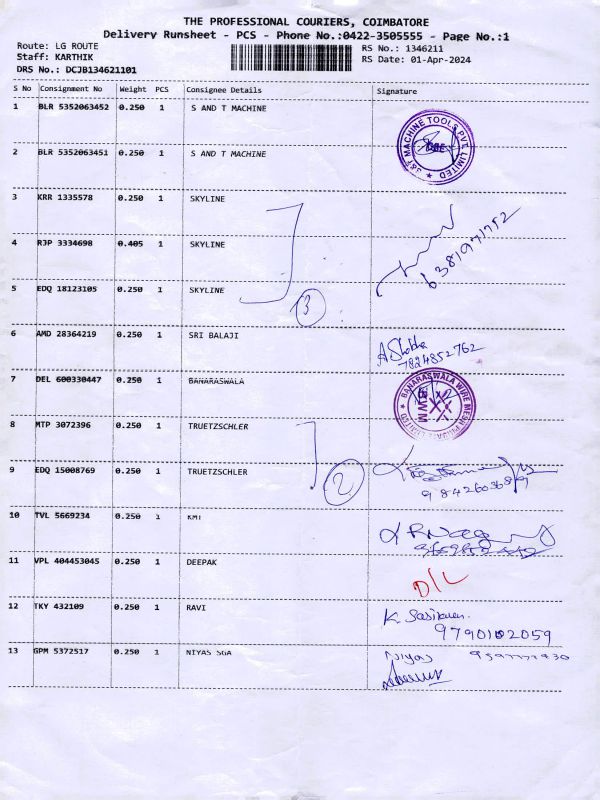 THE PROFESSIONAL COURIERS, COIMBATORE
Delivery Runsheet - PCS - Phone No.:0422-3505555 - Page No.:1
Route: LG ROUTE RS No.: 1346211
Staff: KARTHIK RS Date: 01-Apr-2024
DRS No.: DCJB134621101
S No Consignment No Weight PCS Consignee Details Signature
1 BLR 5352063452 0.250 1 S AND T MACHINE
S&T MACHINE TOOLS PVT LIMITED
2 BLR 5352063451 0.250 1 S AND T MACHINE
3 KRR 1335578 0.250 1 SKYLINE
4 RJP 3334698 0.405 1 SKYLINE 6381971752
5 EDQ 18123105 0.250 1 SKYLINE
3
6 AMD 28364219 0.250 1 SRI BALAJI A. Shobha
7824852762
7 DEL 600330447 0.250 1 BANARASWALA
BANARASWALA WIRE MESH PRIVATE LIMITED BWM
8 MTP 3072396 0.250 1 TRUETZSCHLER
9 EDQ 15008769 0.250 1 TRUETZSCHLER
2
10 TVL 5669234 0.250 1 KMI
11 VPL 404453045 0.250 1 DEEPAK D/L
12 TKY 432109 0.250 1 RAVI K. Sasikumar
9790102059
13 GPM 5372517 0.250 1 NIYAS SGA Niyas